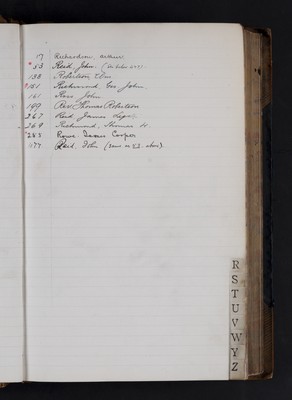 17 Richardson, Arthur
* 53 Reid, John. (See folio 477).
138 Robertson, Ebn
* 151 Richmond, Geo John.
161 Ross, John
199 Rev. Thomas Robertson
267 Reid James
269 Richmond, Thomas H.
* 283 Rowe. James Cooper
477 Reid, John (same as 53. above).
R
S
T
U
V
W
Y
Z